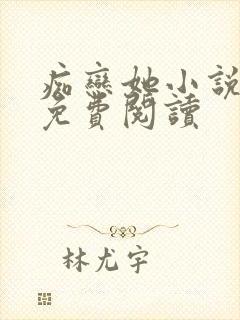 痴戀她小說
免費閱讀
林尤宇